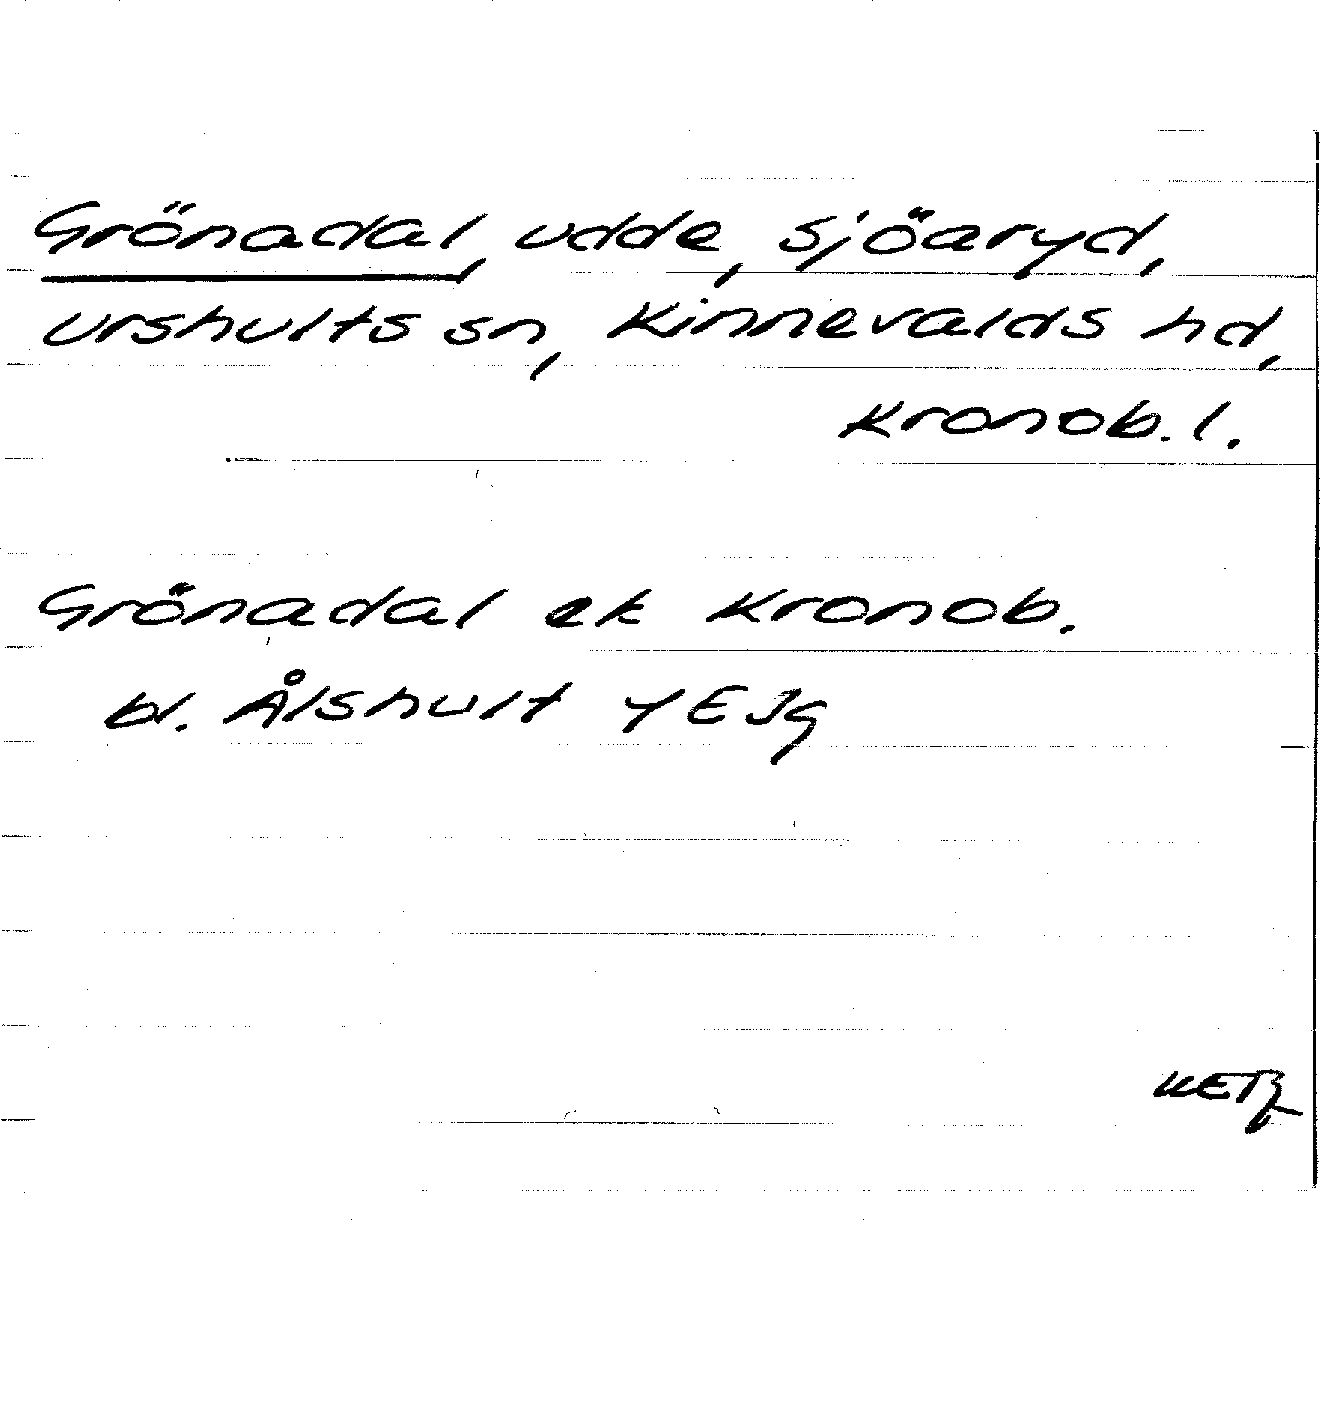 Grönadal, udde, Sjöaryd,
Urshults sn, Kinnevalds hd,
Kronob. l.
Grönadal ek Kronob.
bl. Ålshult 4EJg